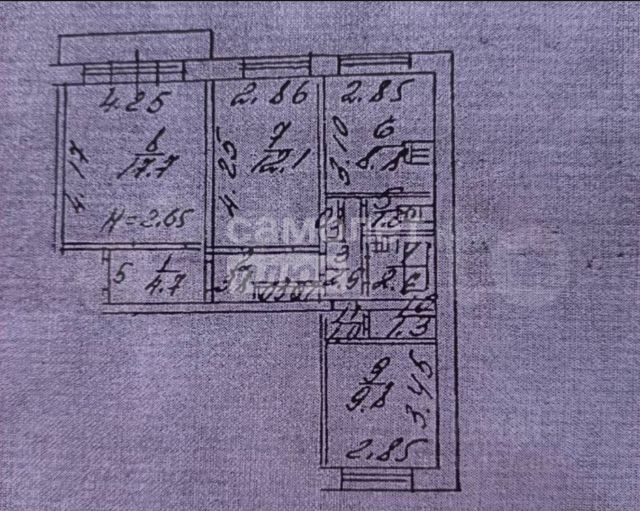 4.25
2.86
2.85
4.17
8
17.7
4.25
7
12.1
3.10
6
8.8
H=2.65
самолет
плюс
5
1
4.7
3
2.5
4
10
1.3
11
1.0
9
9.8
3.45
2.85